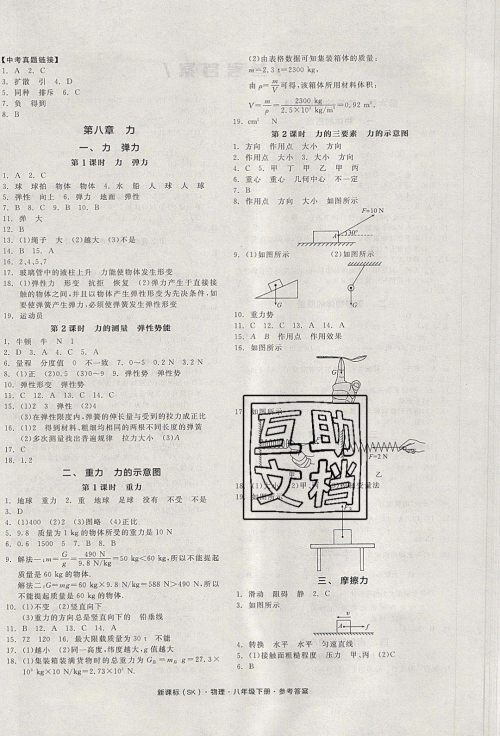 【中考真题链接】
1. A 2. C
3. 扩散 引 4. D
5. 同种 排斥 6. C
7. 负 得到
8. B
第八章 力
一、力 弹力
第1课时 力 弹力
1. A 2. C
3. 球 球拍 物体 物体 4. 水 船 人 球 人 球
5. 弹性 向上 6. 弹力 地面 弹性
7. B 8. C 9. B 10. B
11. 弹 大
12. B
13. (1)绳子 大 (2)越大 (3)不是
14. B 15. A
16. 2,4,5,7
17. 玻璃管中的液柱上升 力能使物体发生形变
18. (1)弹性力 形变 抗拒 恢复 (2)弹力产生于直接接
触的物体之间,并且以物体产生弹性形变为先决条件,如
要使弹簧产生弹力,必须使弹簧发生弹性形变
19. 运动员
第2课时 力的测量 弹性势能
1. 牛顿 牛 N 1
2. D 3. A 4. C 5. A
6. 量程 分度值 0 不一致 7. 0～5 0.2 N 3.2 N
8. (1)正 (2)0.5 (3)0～9 9. 弹性势 弹性势
10. 弹性形变 弹性势
11. C 12. A 13. C 14. C
15. (1)2 3 弹性 (2)4
(3)在弹性限度内,弹簧的伸长量与受到的拉力成正比
16. (1)2 得到材料、粗细均相同的两根不同长度的弹簧
(2)多次测量找出普遍规律 拉力大小 (3)A
17. C
18. 1,2
二、重力 力的示意图
第1课时 重力
1. 地球 重力 2. 重 地球 足球 没有 不受 不是
3. D
4. (1)400 (2)2 (3)图略 (4)正比
5. 9.8 质量为 1 kg 的物体所受的重力是 10 N
6. 0.6 1500 5 7. B 8. B
9. 解法一:m=G/g=490 N/9.8 N/kg=50 kg<60 kg,所以不能提起
质量是 60 kg 的物体.
解法二:G=mg=60 kg×9.8 N/kg=588 N>490 N,所以
不能提起质量是 60 kg 的物体.
10. (1)不变 (2)竖直向下
(3)重力的方向总是竖直向下的 铅垂线
11. B 12. A 13. C 14. A
15. 72 120 16. 最大限载质量为 30 t 不能
17. (1)越小 (2)同一高度,纬度越大,g 值越大
18. (1)集装箱装满货物时的总重力为 G总=m总 g=27.3×
10³ kg×10 N/kg=2.73×10⁵ N.
(2)由表格数据可知集装箱体的质量:
m=2.3 t=2300 kg,
由 ρ=m/V可得,该箱体所用材料体积:
V=m/ρ=2300 kg/2.5×10³ kg/m³=0.92 m³.
19. cm² N
第2课时 力的三要素 力的示意图
1. 方向 作用点 大小 方向
2. 作用点 大小 3. 大小 方向
4. C 5. 甲 丁 甲 乙 甲 丙
6. 重心 重心 几何中心 不一定
7. B
8. 作用点 方向 大小 如图所示
F=10 N
A 30°
9. (1)如图所示 (2)如图所示
G G
10. 重力势
11. C 12. C 13. A 14. A
15. A B 作用点 作用效果
16. 如图所示
G
17. 如图所示
F=2 N
乙
三、摩擦力
1. 滑动 阻碍 静 2. C
3. 如图所示
v
A f
4. 转换 水平 水平 匀速直线
5. (1)接触面粗糙程度 压力 甲、丙 (2)C
6. B
新课标(SK)·物理·八年级下册·参考答案
互助
文档